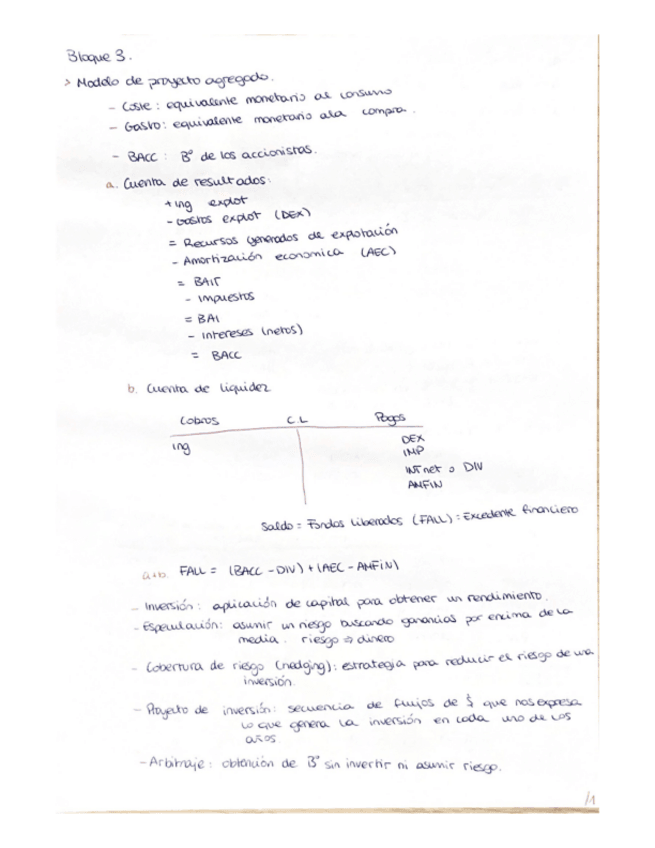 Bloque 3.
> Modelo de proyecto agregado.
- Coste: equivalente monetario al consumo
- Gasto: equivalente monetario a la compra.
- BACC: Bº de los accionistas.
a. Cuenta de resultados:
+ ing explot
- Gastos explot (DEX)
= Recursos generados de explotación
- Amortización economica (AEC)
= BAIT
- impuestos
= BAI
- intereses (netos)
= BACC
b. Cuenta de liquidez
Cobros C.L Pagos
ing DEX
IMP
INTnet o DIV
AMFIN
Saldo = Fondos Liberados (FALL): Excedente financiero
a+b. FALL = (BACC - DIV) + (AEC - AMFIN)
- Inversión: aplicación de capital para obtener un rendimiento.
- Especulación: asumir un riesgo buscando ganancias por encima de la
media. riesgo ⇒ dinero
- Cobertura de riesgo (hedging): estrategia para reducir el riesgo de una
inversión.
- Proyecto de inversión: secuencia de flujos de $ que nos expresa
lo que genera la inversión en cada uno de los
años.
- Arbitraje: obtención de Bº sin invertir ni asumir riesgo.
/1